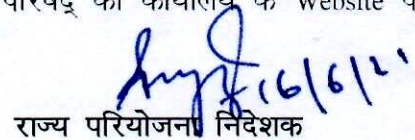 परिषद् की कार्यालय के Website
16/6/21
राज्य परियोजना निदेशक